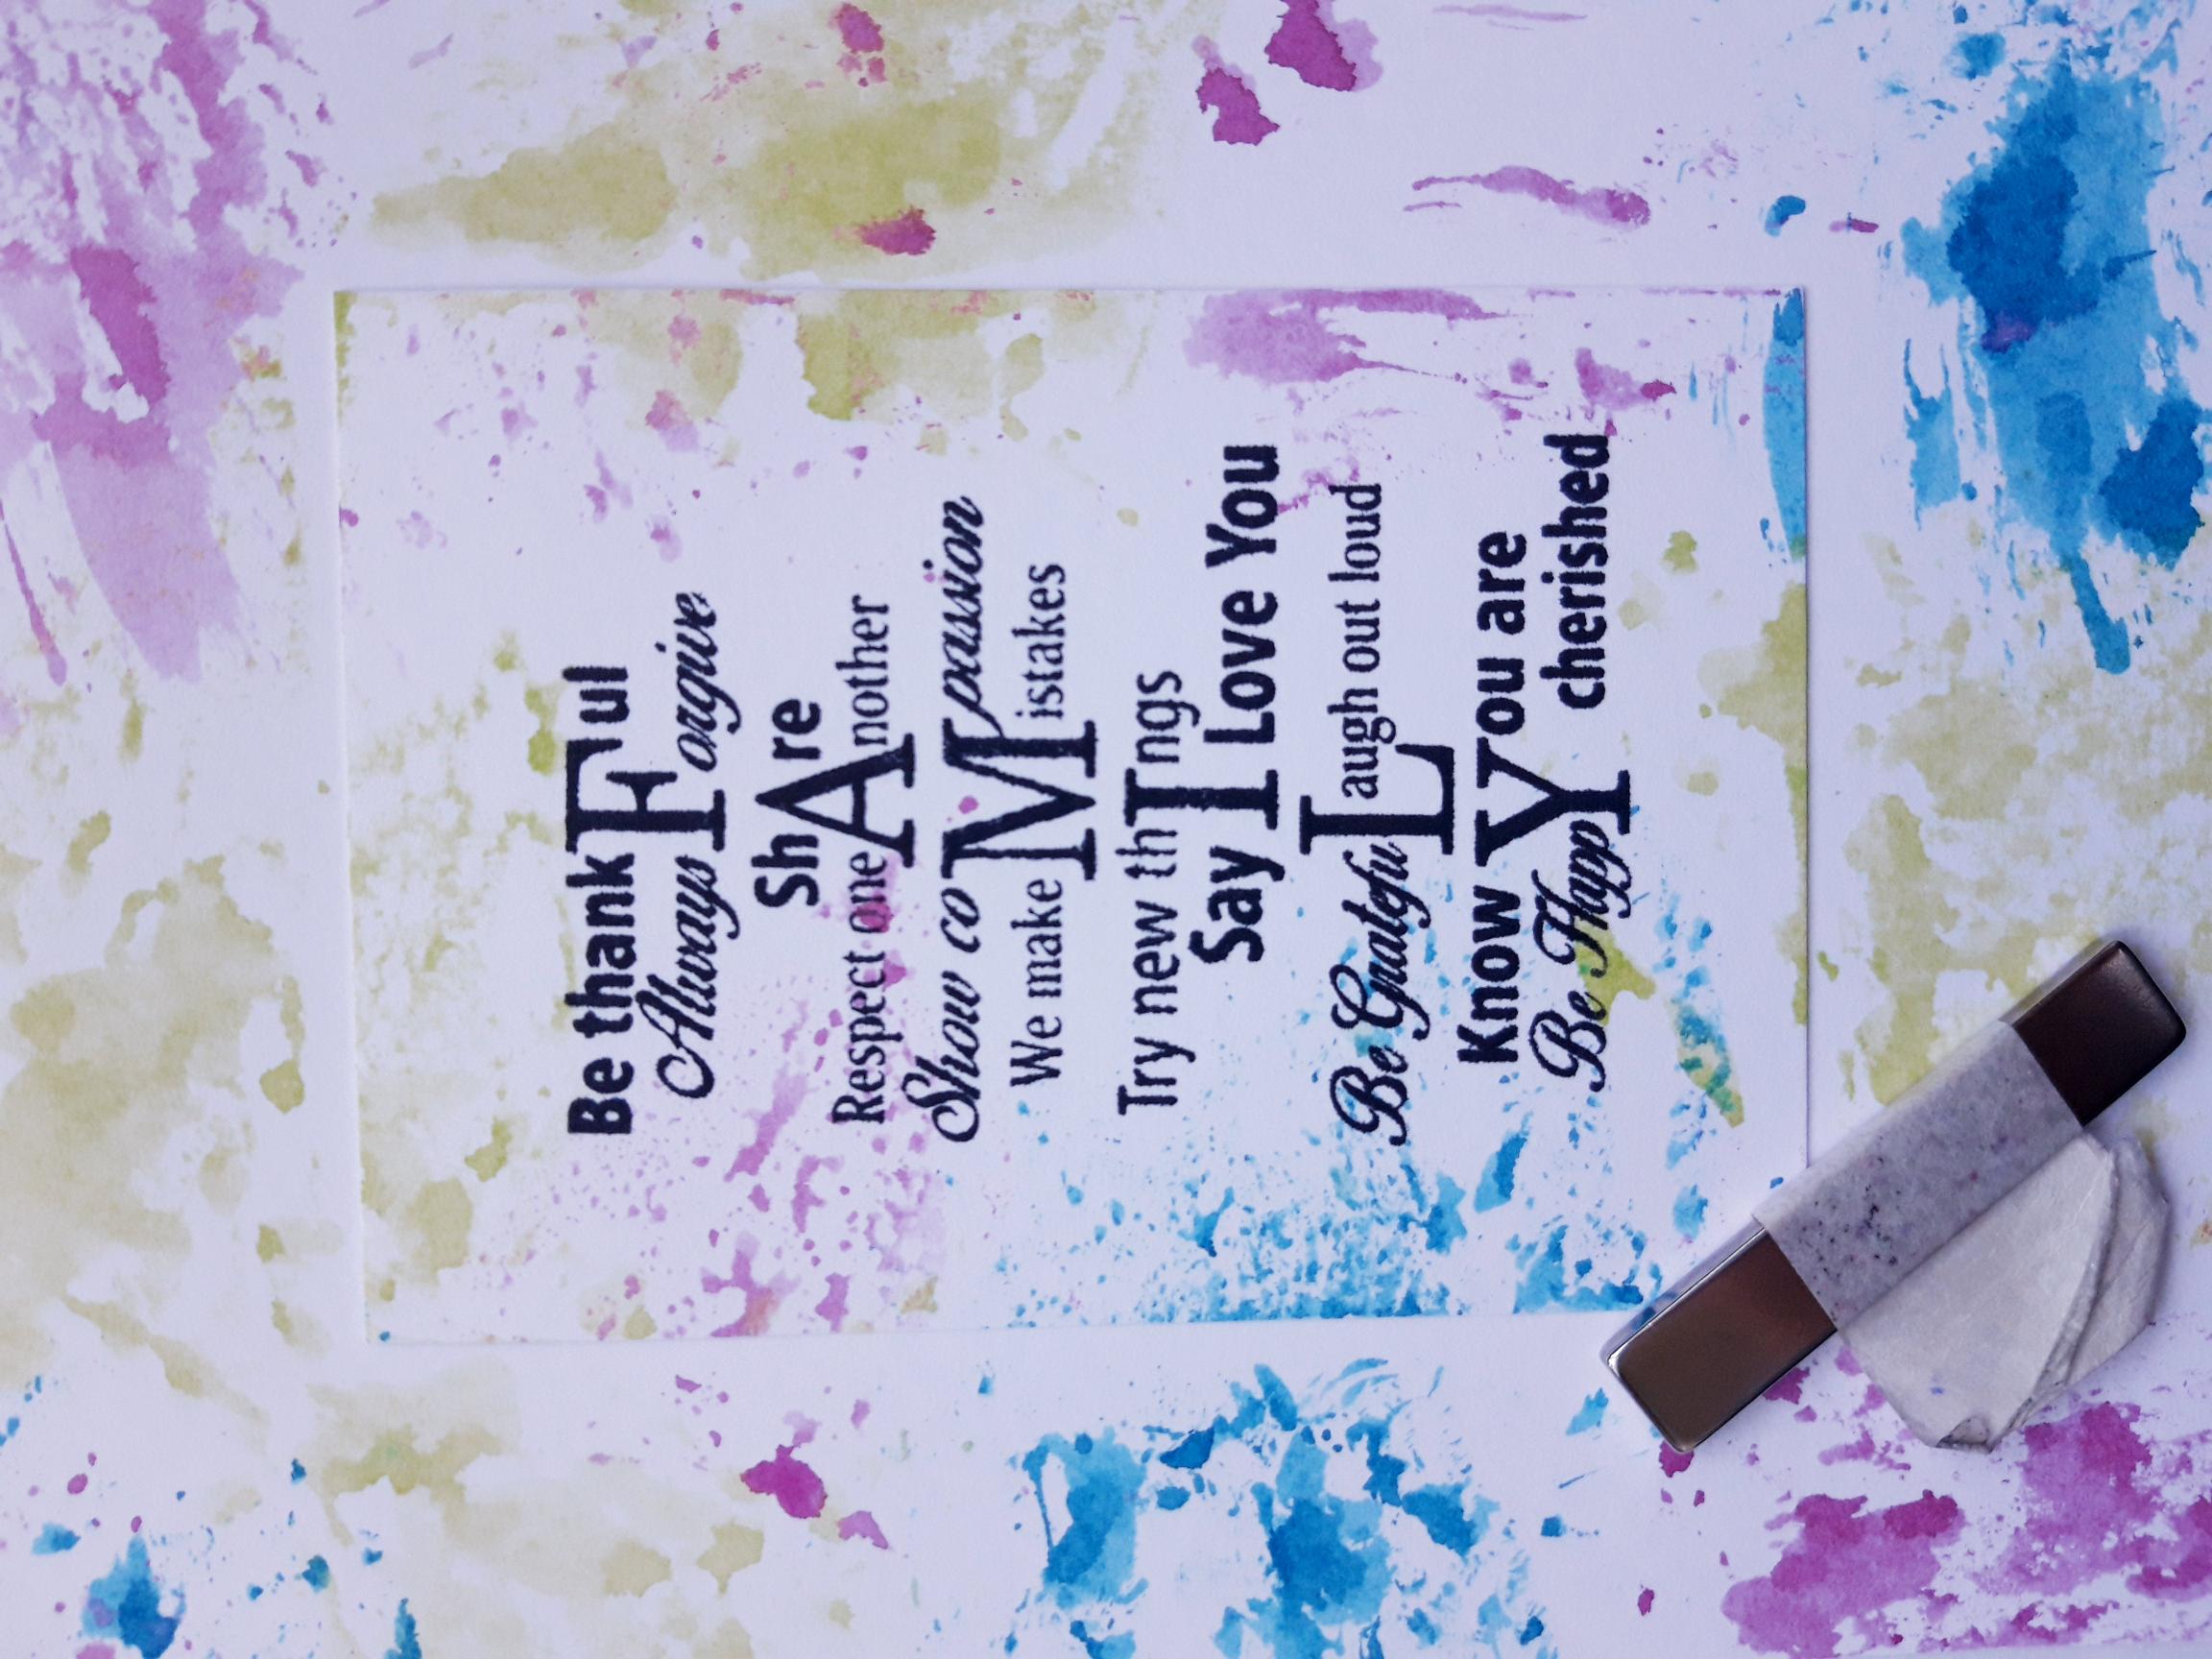 Be thankFul
Always Forgive
ShAre
Respect one Another
Show coMpassion
We make Mistakes
Try new thIngs
Say I Love You
Be Grateful
Laugh out loud
Know You are
cherished
Be Happy